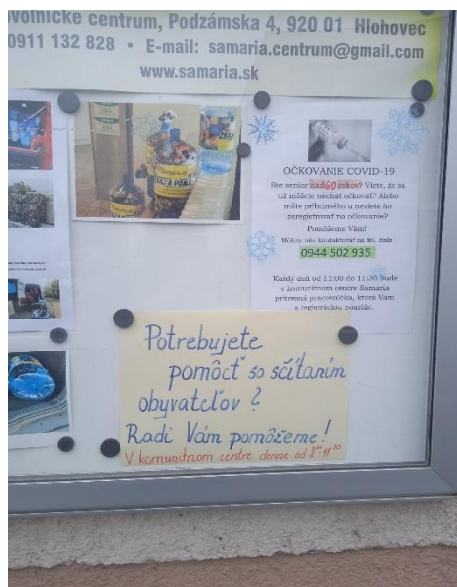 volnícke centrum, Podzámska 4, 920 01 Hlohovec
0911 132 828 • E-mail: samaria.centrum@gmail.com
www.samaria.sk
OČKOVANIE COVID-19
Ste senior nad 60 rokov? Viete, že sa
už môžete nechať očkovať? Alebo
máte príbuzného a neviete ho
zaregistrovať na očkovanie?
Pomôžeme Vám!
Môžete nás kontaktovať na tel. čísle
0944 502 935
Každý deň od 11:00 do 11:30 bude
v komunitnom centre Samaria
prítomná pracovníčka, ktorá Vám
s registráciou pomôže.
Potrebujete
pomôcť so sčítaním
obyvateľov?
Radi Vám pomôžeme!
V komunitnom centre denne od 8⁰⁰-11³⁰